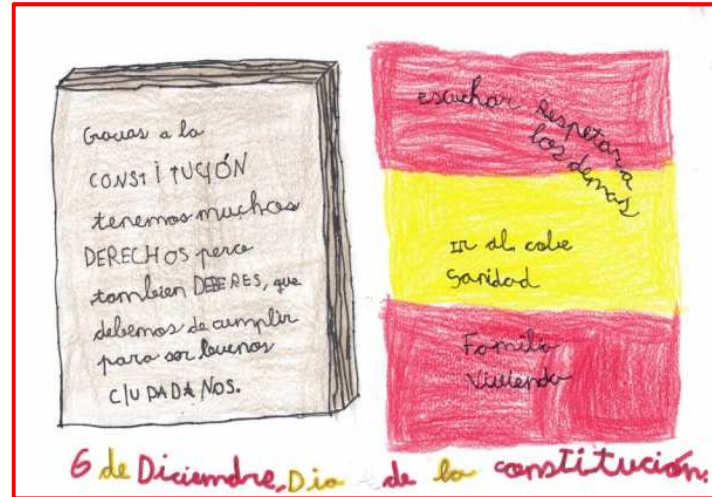 Gracias a la
CONSTITUCIÓN
tenemos muchos
DERECHOS pero
tambien DEBERES, que
debemos de cumplir
para ser buenos
CIUDADANOS.
escuchar Respetar a
los demas
IR al cole
Sanidad
Familia
Vivienda
6 de Diciembre, Dia de la constitución.